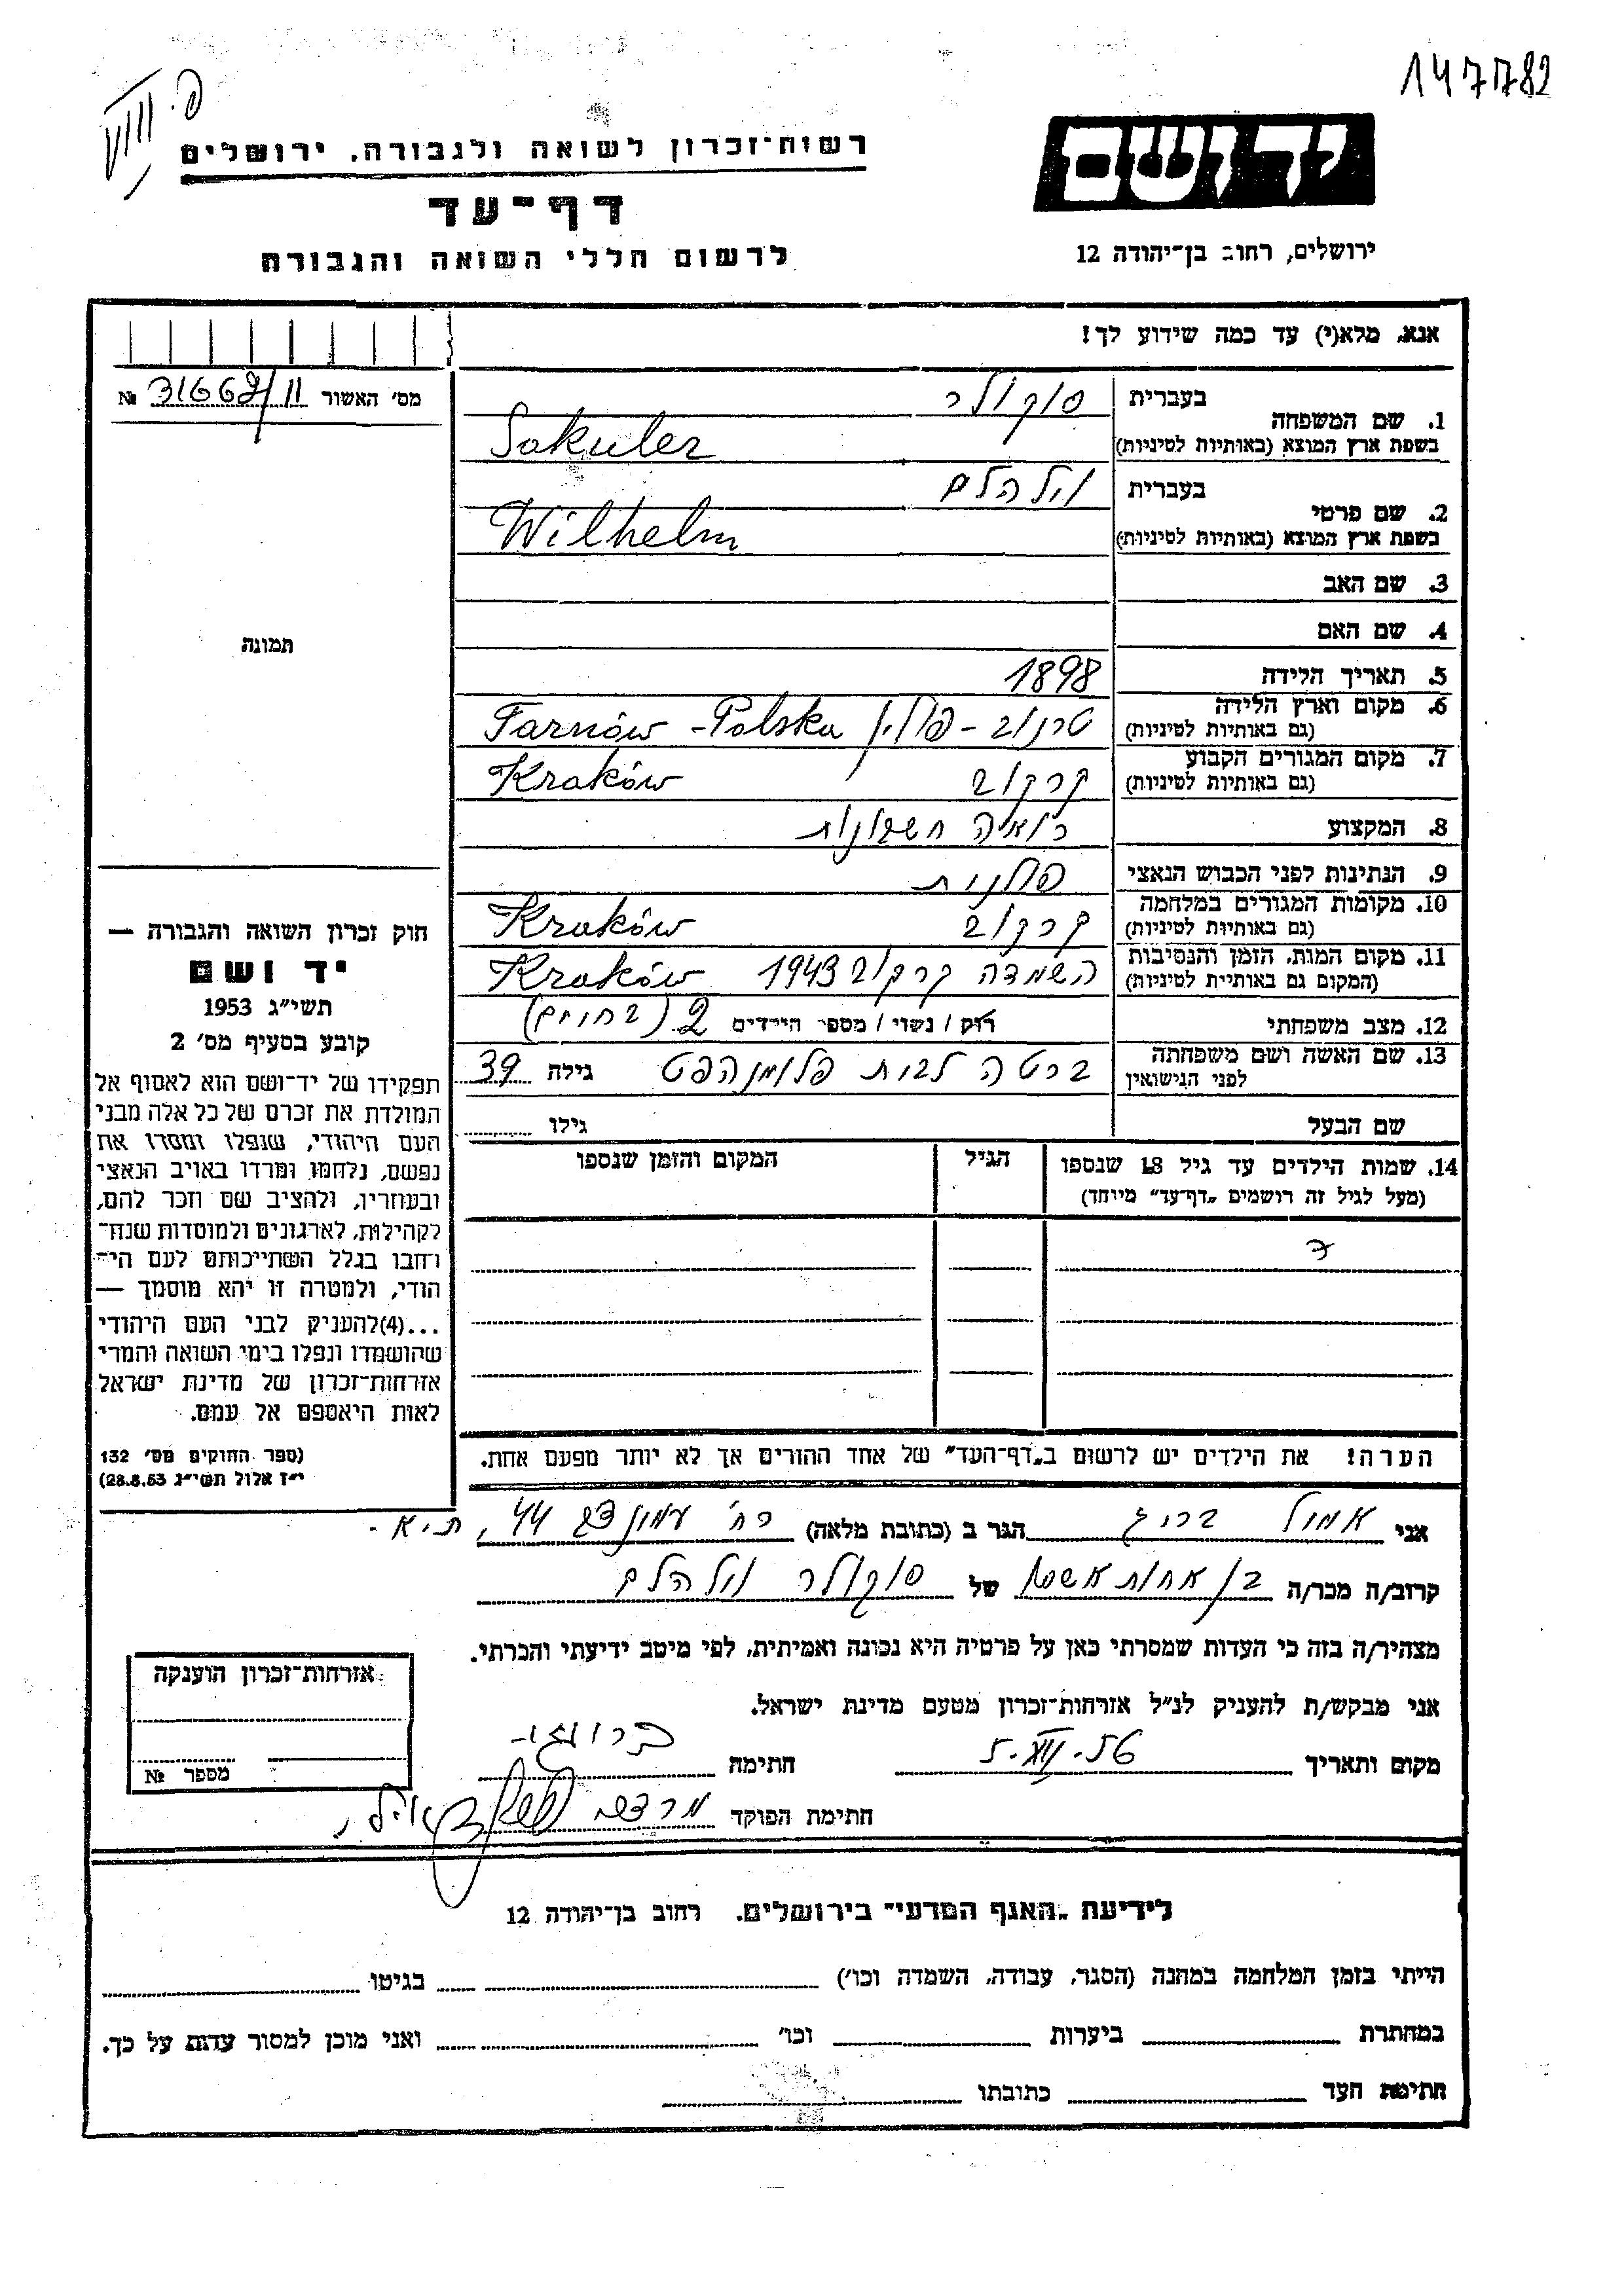 147782
יד ושם
ירושלים, רחוב בן־יהודה 12
רשות־זכרון לשואה ולגבורה, ירושלים
דף־עד
לרשום חללי השואה והגבורה
אנא, מלא(י) עד כמה שידוע לך!
מס׳ האשור № 31662/11
1. שם המשפחה
בעברית סוקולר
בשפת ארץ המוצא (באותיות לטיניות) Sokuler
2. שם פרטי
בעברית וילהלם
בשפת ארץ המוצא (באותיות לטיניות) Wilhelm
3. שם האב
4. שם האם
5. תאריך הלידה 1898
6. מקום וארץ הלידה (גם באותיות לטיניות) טרנוב - פולין Tarnów - Polska
7. מקום המגורים הקבוע (גם באותיות לטיניות) קרקוב Kraków
8. המקצוע רואה חשבונות
9. הנתינות לפני הכבוש הנאצי פולנית
10. מקומות המגורים במלחמה (גם באותיות לטיניות) קרקוב Kraków
11. מקום המות, הזמן והנסיבות (המקום גם באותיות לטיניות) השמדה קרקוב 1943 Kraków
12. מצב משפחתי רווק / נשוי / מספר הילדים 2
13. שם האשה ושם משפחתה לפני הנישואין ברטה לבית גילה 39
שם הבעל גילו
14. שמות הילדים עד גיל 18 שנספו (מעל לגיל זה רושמים „דף־עד״ מיוחד)
הגיל
המקום והזמן שנספו
הערה! את הילדים יש לרשום ב„דף־העד״ של אחד ההורים אך לא יותר מפעם אחת.
תמונה
חוק זכרון השואה והגבורה —
יד ושם
תשי״ג 1953
קובע בסעיף מס׳ 2
תפקידו של יד־ושם הוא לאסוף אל
המולדת את זכרם של כל אלה מבני
העם היהודי, שנפלו ומסרו את
נפשם, נלחמו ומרדו באויב הנאצי
ובעוזריו, ולהציב שם וזכר להם,
לקהילות, לארגונים ולמוסדות שנח־
רבו בגלל השתייכותם לעם הי־
הודי, ולמטרה זו יהא מוסמך —
...(4)להעניק לבני העם היהודי
שהושמדו ונפלו בימי השואה והמרי
אזרחות־זכרון של מדינת ישראל
לאות היאספם אל עמם.
(ספר החוקים מס׳ 132
י״ז אלול תשי״ג 28.8.53)
אני אמיל הגר ב (כתובת מלאה) רח׳ 44, ת״א.
קרוב/ה מכר/ה בן אחות אשתו של סוקולר וילהלם
מצהיר/ה בזה כי העדות שמסרתי כאן על פרטיה היא נכונה ואמיתית, לפי מיטב ידיעתי והכרתי.
אני מבקש/ת להעניק לנ״ל אזרחות־זכרון מטעם מדינת ישראל.
מקום ותאריך חתימה
חתימת הפוקד
אזרחות־זכרון הוענקה
מספר №
לידיעת „האגף המדעי״ בירושלים, רחוב בן־יהודה 12
הייתי בזמן המלחמה במחנה (הסגר, עבודה, השמדה וכו׳) בגיטו
במחתרת ביערות וכו׳ ואני מוכן למסור עדות על כך.
חתימת העד כתובתו